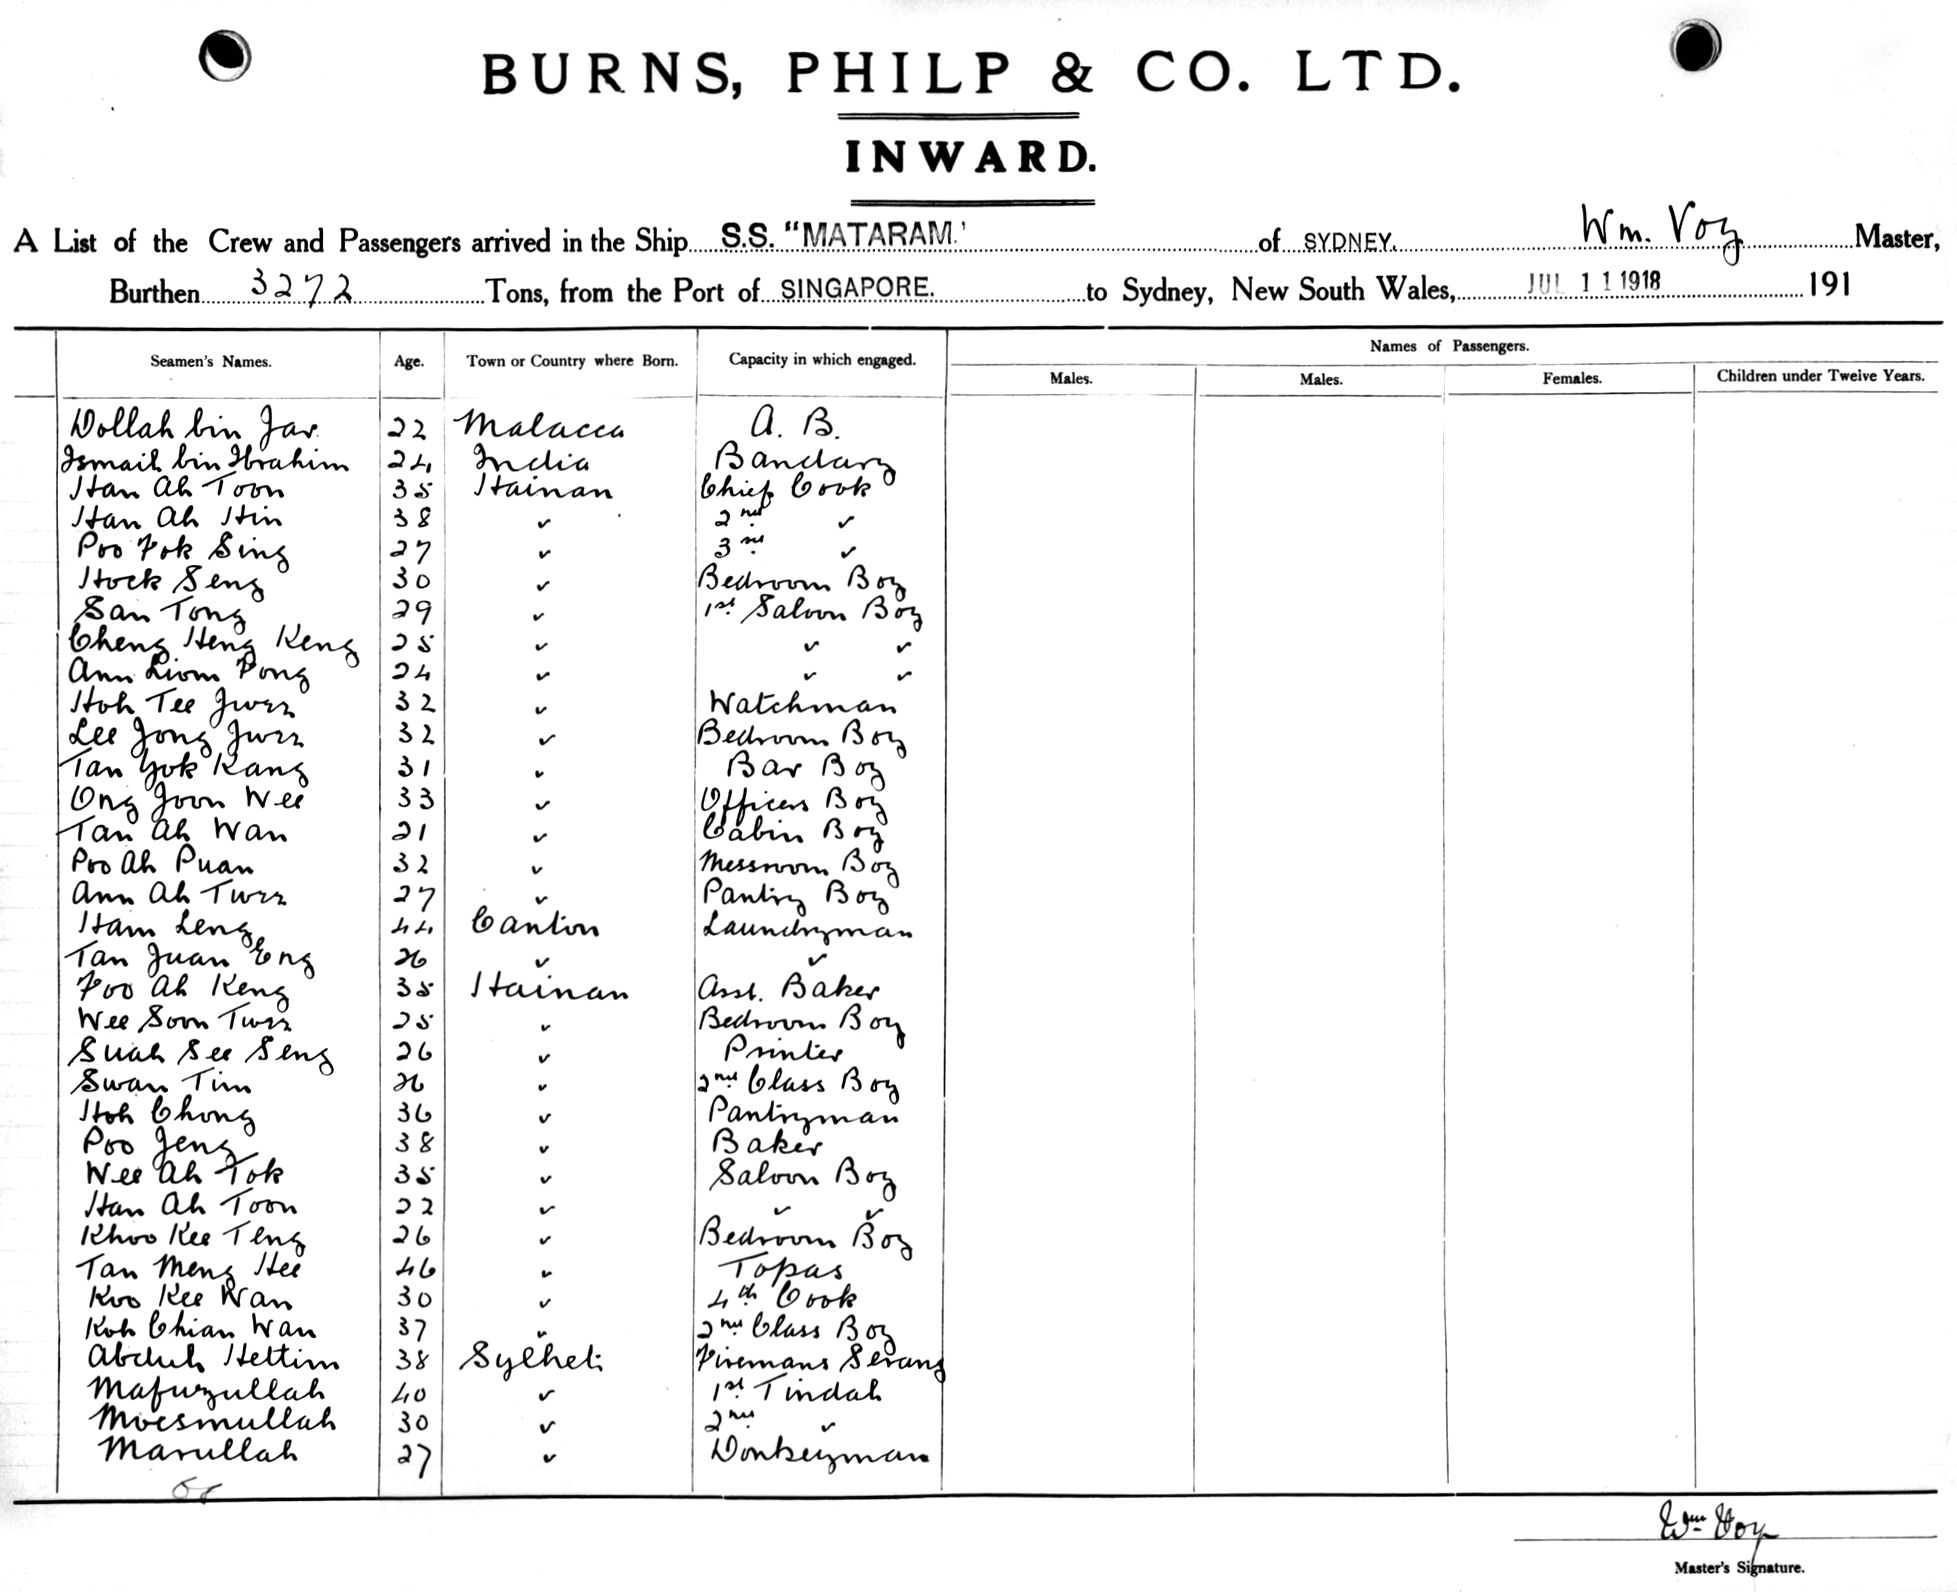 BURNS, PHILP & CO. LTD.
INWARD.
A List of the Crew and Passengers arrived in the Ship S.S. "MATARAM." of SYDNEY. Wm. Voy Master,
Burthen 3272 Tons, from the Port of SINGAPORE. to Sydney, New South Wales, JUL 11 1918 191
Names of Passengers.
Seamen's Names. Age. Town or Country where Born. Capacity in which engaged. Males. Males. Females. Children under Twelve Years.
Dollah bin Jar 22 Malacca A. B.
Ismail bin Ibrahim 24 India Bandary
Han Ah Toon 35 Hainan Chief Cook
Han Ah Hin 38 " 2nd "
Poo Fok Sing 27 " 3rd "
Hock Seng 30 " Bedroom Boy
San Tong 29 " 1st Saloon Boy
Cheng Heng Keng 25 " " "
Ann Liom Pong 24 " " "
Hoh Tee Jwee 32 " Watchman
Lee Jong Jwee 32 " Bedroom Boy
Tan Yok Kang 31 " Bar Boy
Ong Joon Wee 33 " Officers Boy
Tan Ah Wan 21 " Cabin Boy
Poo Ah Puan 32 " Messroom Boy
Ann Ah Twee 27 " Pantry Boy
Ham Leng 44 Canton Laundryman
Tan Juan Eng 26 " "
Foo Ah Keng 35 Hainan Asst. Baker
Wee Soon Twee 25 " Bedroom Boy
Suah See Seng 26 " Printer
Swan Tim 26 " 2nd Class Boy
Hoh Chong 36 " Pantryman
Poo Jeng 38 " Baker
Wee Ah Tok 35 " Saloon Boy
Han Ah Toon 22 " " "
Khoo Kee Teng 26 " Bedroom Boy
Tan Meng Hee 46 " Topas
Koo Kee Wan 30 " 4th Cook
Koh Chian Wan 37 " 2nd Class Boy
Abduh Hettim 38 Sylhet Firemans Serang
Mafuzullah 40 " 1st Tindah
Moesmullah 30 " 2nd "
Marullah 27 " Donkeyman
Wm Voy
Master's Signature.